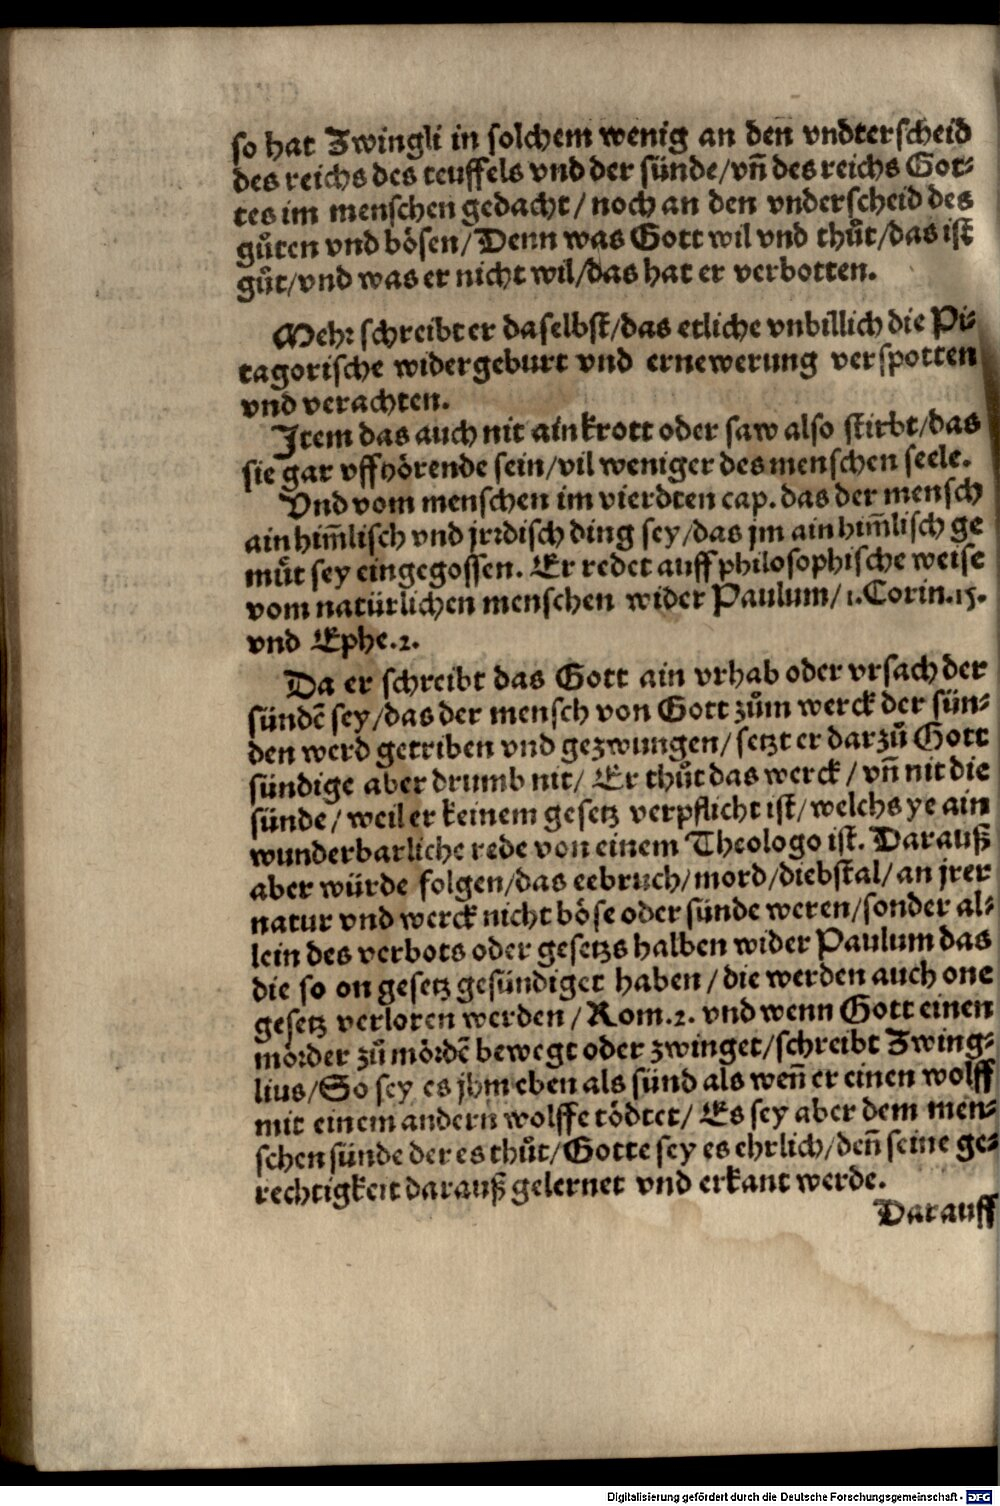 so hat Zwingli in solchem wenig an den vndterscheid
des reichs des teuffels vnd der sünde/vn̄ des reichs Got-
tes im menschen gedacht/ noch an den vnderscheid des
gůten vnd bösen/Denn was Gott wil vnd thůt/das ist
gůt/vnd was er nicht wil/das hat er verbotten.
Mehr schreibt er daselbst/das etliche vnbillich die Pi-
tagorische widergeburt vnd ernewerung verspotten
vnd verachten.
Item das auch nit ain krott oder saw also stirbt/das
sie gar vffhörende sein/vil weniger des menschen seele.
Vnd vom menschen im vierdten cap. das der mensch
ain him̄lisch vnd jrrdisch ding sey/das jm ain him̄lisch ge
můt sey eingegossen. Er redet auff philosophische weise
vom natürlichen menschen wider Paulum/ 1.Corin.15.
vnd Ephe.2.
Da er schreibt das Gott ain vrhab oder vrsach der
sündē sey/das der mensch von Gott zům werck der sün-
den werd getriben vnd gezwungen/ setzt er darzů Gott
sündige aber drumb nit/ Er thůt das werck/ vn̄ nit die
sünde/ weil er keinem gesetz verpflicht ist/welchs ye ain
wunderbarliche rede von einem Theologo ist. Darauß
aber würde folgen/das eebruch/mord/diebstal/an jrer
natur vnd werck nicht böse oder sünde weren/sonder al-
lein des verbots oder gesetzs halben wider Paulum das
die so on gesetz gesündiget haben/die werden auch one
gesetz verloren werden/Rom.2. vnd wenn Gott einen
mörder zů mördē bewegt oder zwinget/schreibt Zwing-
lius/So sey es jhm eben als sünd als wen̄ er einen wolff
mit einem andern wolffe tödtet/ Es sey aber dem men-
schen sünde der es thůt/Gotte sey es ehrlich/den̄ seine ge-
rechtigkeit darauß gelernet vnd erkant werde.
Darauff
Digitalisierung gefördert durch die Deutsche Forschungsgemeinschaft - DFG